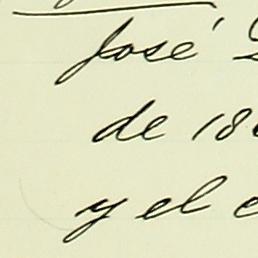 José
de 18
y el